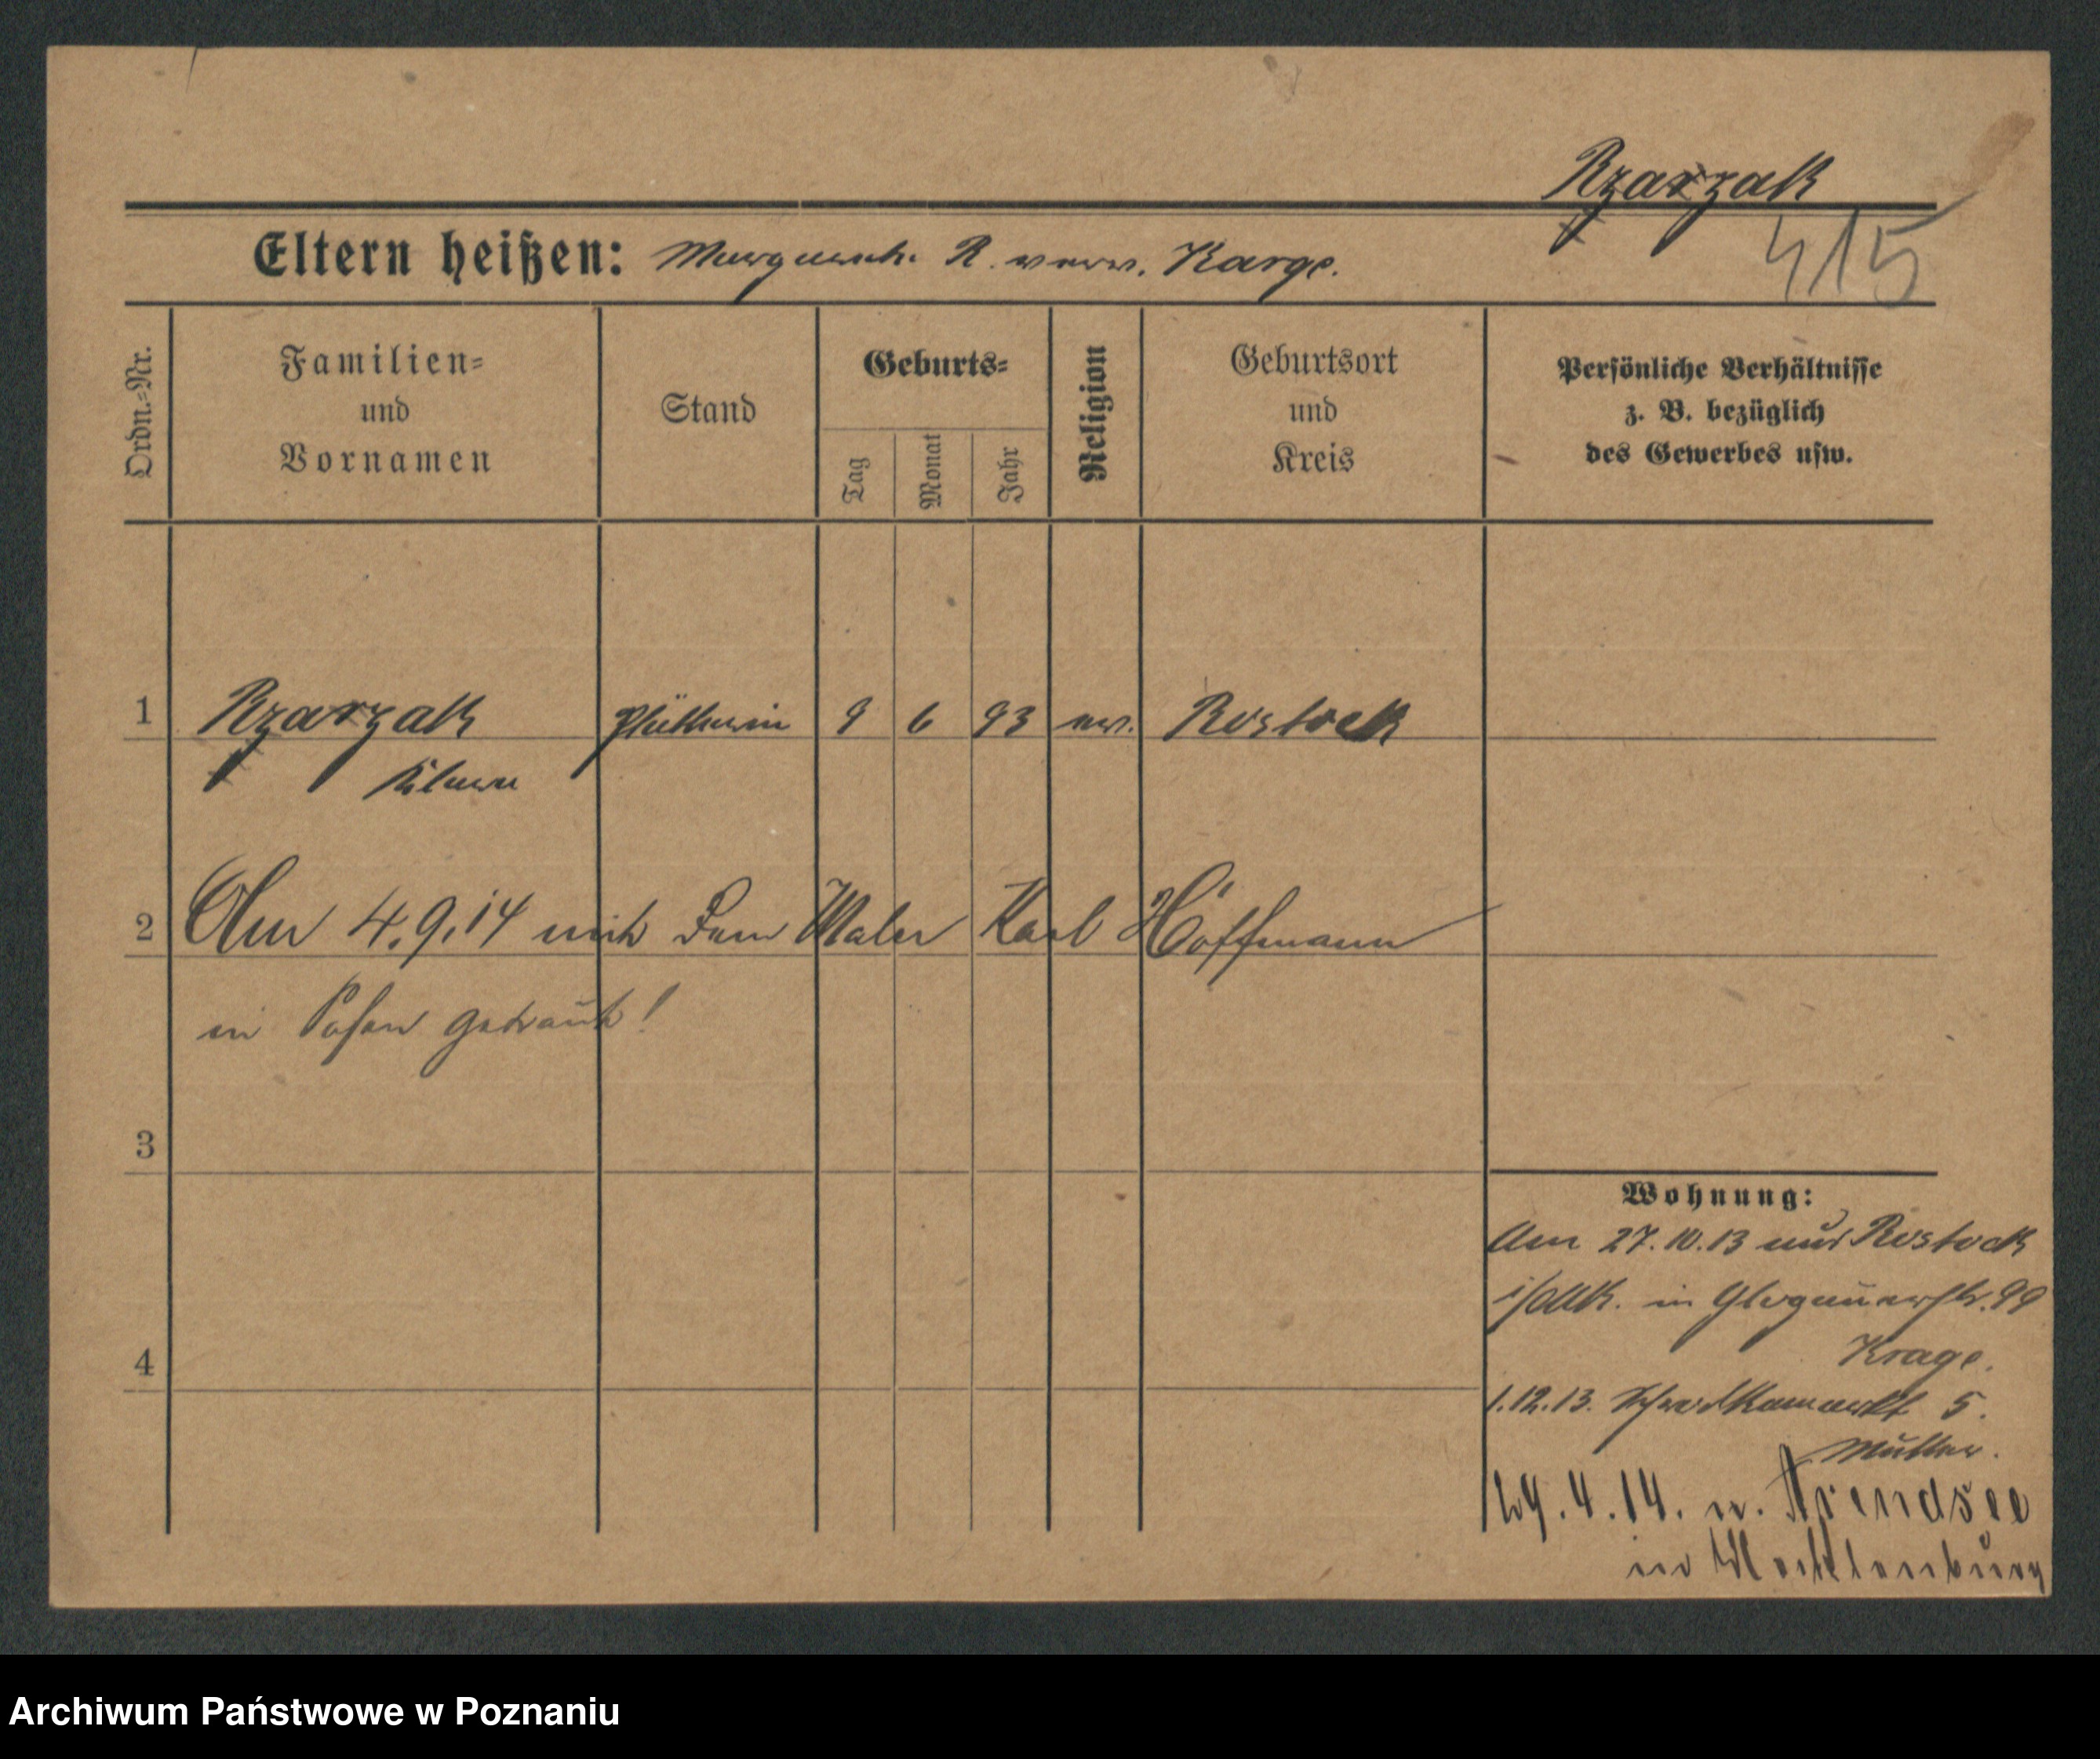 Rzarzak
415
Eltern heißen: Margareth. R. verw. Karge.
Ordn.-Nr.
Familien-
und
Vornamen
Stand
Geburts-
Tag
Monat
Jahr
Religion
Geburtsort
und
Kreis
Persönliche Verhältnisse
z. B. bezüglich
des Gewerbes usw.
1 Rzarzak Plätterin 9 6 93 ev. Rostock
Klara
2 Am 4.9.14 mit dem Maler Karl Hoffmann
in Posen getraut!
3
4
Wohnung:
Am 27.10.13 aus Rostock
i/Mk. in Glogauerstr. 99
Krage.
1.12.13. 5.
Mutter.
29.4.14. n. Arendsee
in Mecklenburg
Archiwum Państwowe w Poznaniu